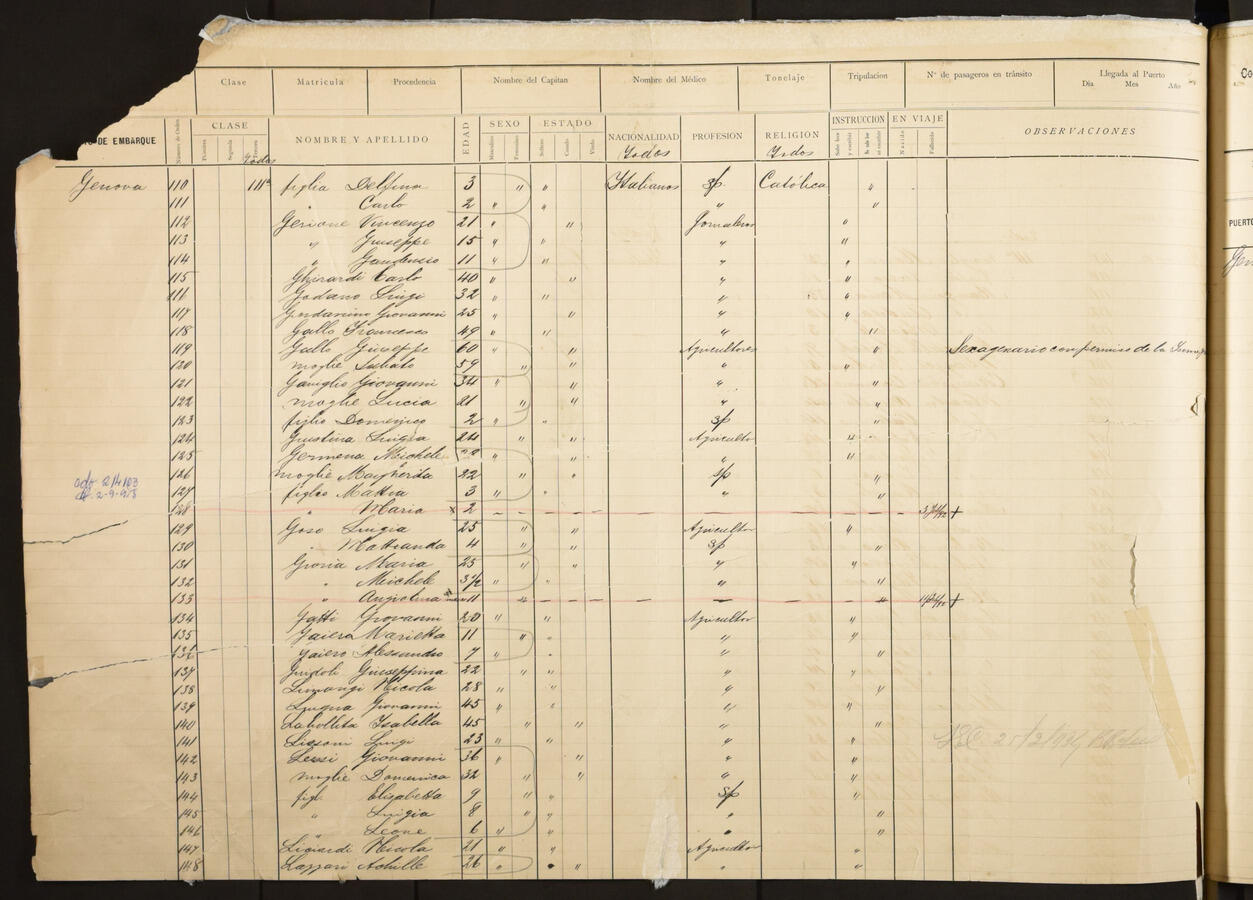 Clase Matricula Procedencia Nombre del Capitan Nombre del Médico Tonelaje Tripulacion Nº de pasageros en tránsito Llegada al Puerto
Dia Mes Año
DE EMBARQUE Número de Orden CLASE NOMBRE Y APELLIDO EDAD SEXO ESTADO NACIONALIDAD PROFESION RELIGION INSTRUCCION EN VIAJE OBSERVACIONES
Primera Segunda Tercera Masculino Femenino Soltero Casado Viudo Sabe leer y escribir No sabe leer ni escribir Nacido Fallecido
Todos Todos Todos
Genova 110 111ª figlia Delfina 3 " " Italianos S/p Católica "
111 " Carlo 2 " " " "
112 Gerione Vincenzo 21 " " Jornaleros "
113 " Giuseppe 15 " " " "
114 " Gaudenzio 11 " " " "
115 Ghirardi Carlo 40 " " " "
116 Godano Luigi 32 " " " "
117 Giovanni 25 " " " "
118 Gallo Francesco 49 " " " "
119 Gallo Giuseppe 60 " " Agricultores " Sexagenario con permiso de la
120 moglie Sabato 59 " " " "
121 Gaviglio Giovanni 34 " " " "
122 moglie Lucia 21 " " " "
123 figlio Domenico 2 " " S/p "
124 Giustina Luigia 24 " " Agricultor "
125 Germena Michele " " " "
126 moglie Margherita 22 " " S/p "
127 figlio Mattia 3 " " " "
128 " Maria x 2 - - - - - +
129 Goso Luigia 25 " " Agricultor "
130 " 4 " " S/p "
131 Gioria Maria 25 " " " "
132 " Michele 3 1/2 " " " "
133 " Angiolina 11 " - - - - " +
134 Gatti Giovanni 20 " " Agricultor "
135 Gaiero Marietta 11 " " " "
136 Gaiero Alessandro 7 " " " "
137 Guidoli Giuseppina 22 " " " "
138 Nicola 28 " " " "
139 Giovanni 45 " " " "
140 Labollita Isabella 45 " " " "
141 Lissoni Luigi 23 " " " "
142 Lessi Giovanni 36 " " " "
143 moglie Domenica 32 " " " "
144 figl Elisabetta 9 " " S/p "
145 " Luigia 8 " " " "
146 " Leone 6 " " " "
147 Liciardi Nicola 21 " " Agricultor "
148 Lazzari Achille 26 " " " "
PUERTO